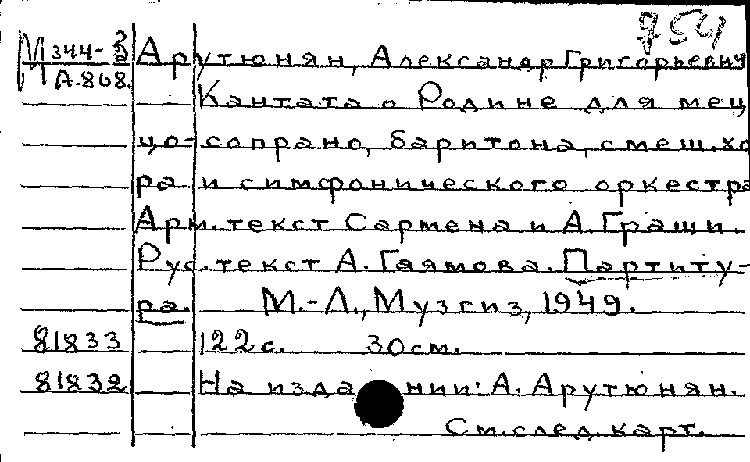 754
М344-3 Арутюнян, Александр Григорьевич
А.868.
Кантата о Родине для мец
цо-сопрано, баритона, смеш.хо
ра и симфонического оркестра
Арм.текст Сармена и А.Граши.
Рус.текст А.Гаямова. Партиту-
ра. М.-Л., Музгиз, 1949.
81833 122с. 30см.
81832 На издании: А. Арутюнян.
См.след.карт.